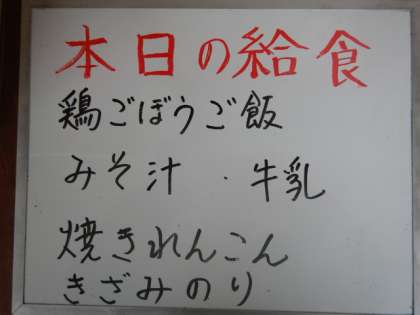 本日の給食
鶏ごぼうご飯
みそ汁・牛乳
焼きれんこん
きざみのり